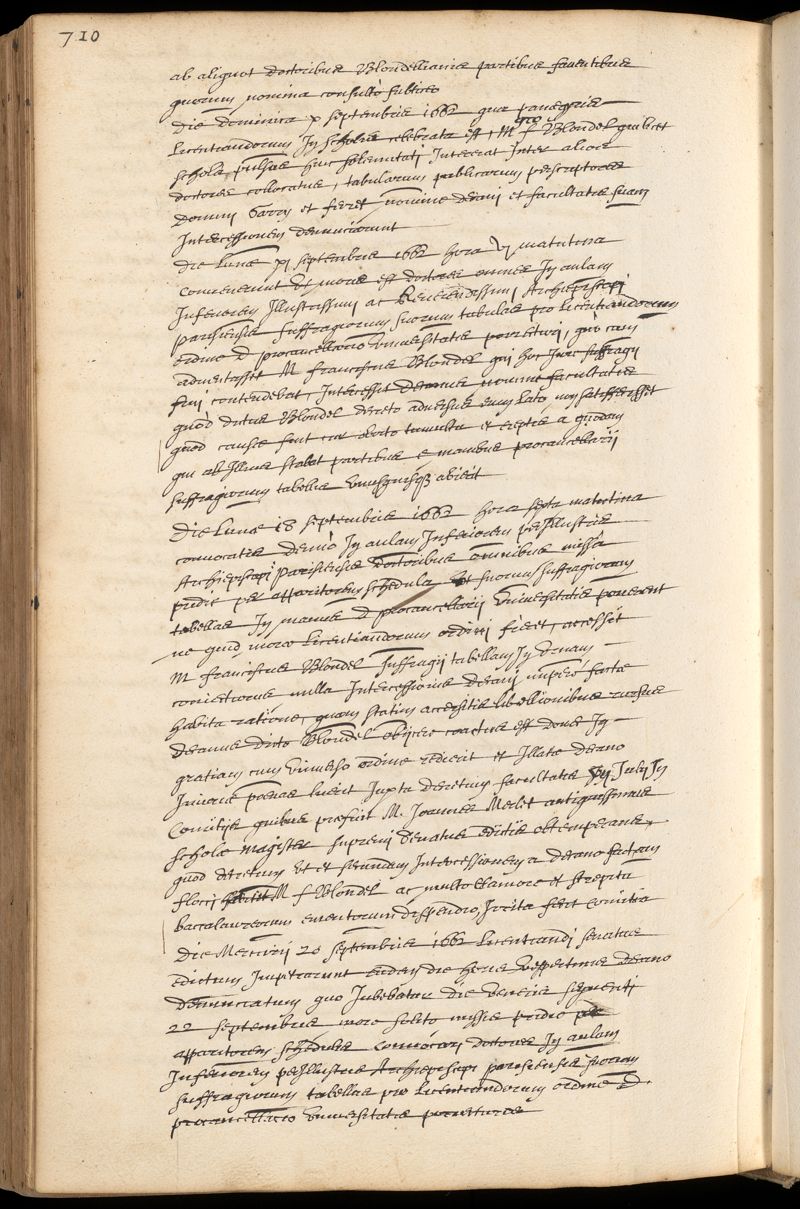 710
ab aliquot doctoribus Blondellianis partibus faventibus
quorum nomina consultò subticeo
Die dominica x septembris 1662 qua panegyris
Licentiandorum In scholis celebrata est, M f Blondel qui licet
gro
schola pulsus huic solemnitati Intererat Inter alios
doctores collocatus, tabularum publicarum perscriptores
Domini Garry et ferret nomine decani et facultatis suam
Intercessionem denunciarunt
Die Lunæ xj septembris 1662 hora vj matutina
convenerunt ut moris est doctores omnes In aulam
Inferiorem Illustrissimi ac Reverendissimi Archiepiscopi
parisiensis suffragiorum suorum tabulas pro Licentiandorum
ordine D procancellario universitatis porrecturi, quò cum
adventasset M franciscus Blondel qui hoc Jure suffragij
frui contendebat, Intercessit Decanus nomine facultatis
quòd dictus Blondel decreto adversus eum lato non satisfecisset
quod causæ fuit cur oborto tumultu et ereptis a quodam
qui ab Illius stabat partibus e manibus procancellarij
suffragiorum tabellis unusquisq abierit
Die Lunæ 18 septembris 1662 hora septa matutina
convocatis denuò In aulam Inferiorem perillustris
Archiepiscopi parisiensis doctoribus omnibus missa
pridie per apparitorem schedula ut suorum suffragiorum
tabellas In manus D procancellarij Universitatis ponerent
ne quid moræ Licentiandorum ordini fieret, accessit
M franciscus Blondel suffragij tabellam In urnam
coniecturus nulla Intercessionis Decani nuper factæ
habita ratione, quam statim accersitis libellionibus rursus
Decanus dicto Blondel obijcere coactus est donec In
gratiam cum universo ordine redierit et Illatæ decano
Iniuriæ poenas luerit Juxta decretum facultatis vij Julij In
Comitijs quibus præfuit M. Joannes Merlet antiquissimus
scholæ magister supremi senatus edictis obtemperans,
quod decretum ut et secundam Intercessionem a decano factam
flocci fecit M f Blondel ac multo clamore et strepitu
baccalaureorum emeritorum dispendio, Irrita fecit comitia
Die Mercurij 20 septembris 1662 licentiandi senatus
edictum Impetrarunt eadem die horis vespertinis decano
denunciatum quo Jubebatur die veneris sequenti
22 septembris more solito missis pridie per
apparitorem schedulis convocari doctores In aulam
Inferiorem perillustris Archiepiscopi parisiensis suorum
suffragiorum tabellas pro Licentiandorum ordine D.
procancellario universitatis porrecturos